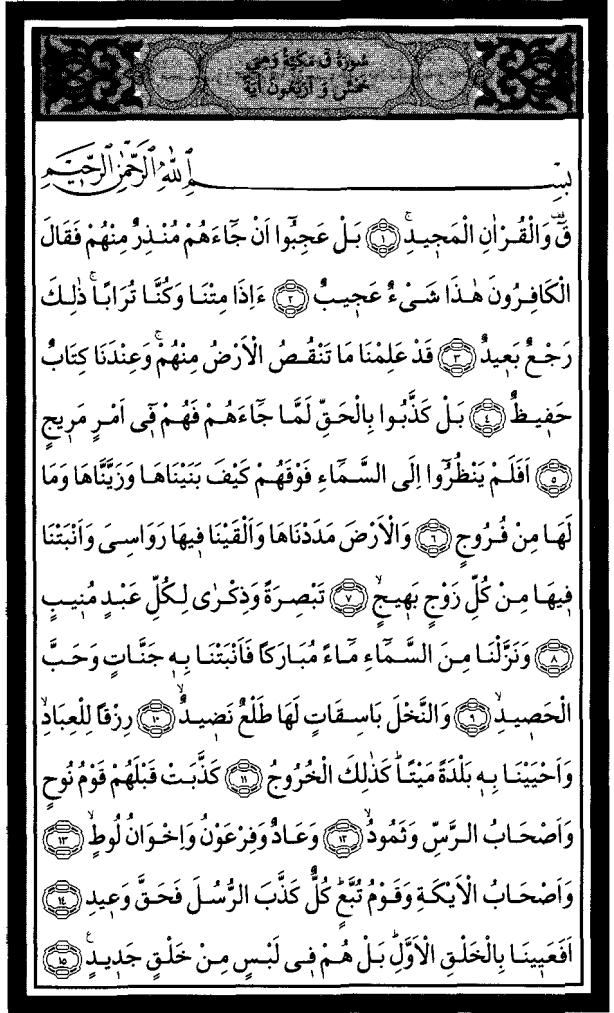 سُورَةُ قٓ مَكِّيَّةٌ وَهِيَ
خَمْسٌ وَ اَرْبَعُونَ اٰيَةً
بِسْمِ اللّٰهِ الرَّحْمٰنِ الرَّحِيمِ
قٓ وَالْقُرْاٰنِ الْمَجِيدِۚ ﴿١﴾ بَلْ عَجِبُٓوا اَنْ جَٓاءَهُمْ مُنْذِرٌ مِنْهُمْ فَقَالَ
الْكَافِرُونَ هٰذَا شَىْءٌ عَجِيبٌ ﴿٢﴾ ءَاِذَا مِتْنَا وَكُنَّا تُرَابًاۚ ذٰلِكَ
رَجْعٌ بَعِيدٌ ﴿٣﴾ قَدْ عَلِمْنَا مَا تَنْقُصُ الْاَرْضُ مِنْهُمْۚ وَعِنْدَنَا كِتَابٌ
حَفِيظٌ ﴿٤﴾ بَلْ كَذَّبُوا بِالْحَقِّ لَمَّا جَٓاءَهُمْ فَهُمْ فِٓى اَمْرٍ مَرِيجٍ
﴿٥﴾ اَفَلَمْ يَنْظُرُٓوا اِلَى السَّمَٓاءِ فَوْقَهُمْ كَيْفَ بَنَيْنَاهَا وَزَيَّنَّاهَا وَمَا
لَهَا مِنْ فُرُوجٍ ﴿٦﴾ وَالْاَرْضَ مَدَدْنَاهَا وَاَلْقَيْنَا فِيهَا رَوَاسِىَ وَاَنْبَتْنَا
فِيهَا مِنْ كُلِّ زَوْجٍ بَهِيجٍۙ ﴿٧﴾ تَبْصِرَةً وَذِكْرٰى لِكُلِّ عَبْدٍ مُنِيبٍ
﴿٨﴾ وَنَزَّلْنَا مِنَ السَّمَٓاءِ مَٓاءً مُبَارَكًا فَاَنْبَتْنَا بِهِ جَنَّاتٍ وَحَبَّ
الْحَصِيدِۙ ﴿٩﴾ وَالنَّخْلَ بَاسِقَاتٍ لَهَا طَلْعٌ نَضِيدٌۙ ﴿١٠﴾ رِزْقًا لِلْعِبَادِۙ
وَاَحْيَيْنَا بِهِ بَلْدَةً مَيْتًاۜ كَذٰلِكَ الْخُرُوجُ ﴿١١﴾ كَذَّبَتْ قَبْلَهُمْ قَوْمُ نُوحٍ
وَاَصْحَابُ الرَّسِّ وَثَمُودُۙ ﴿١٢﴾ وَعَادٌ وَفِرْعَوْنُ وَاِخْوَانُ لُوطٍۙ ﴿١٣﴾
وَاَصْحَابُ الْاَيْكَةِ وَقَوْمُ تُبَّعٍۜ كُلٌّ كَذَّبَ الرُّسُلَ فَحَقَّ وَعِيدِ ﴿١٤﴾
اَفَعَيِينَا بِالْخَلْقِ الْاَوَّلِۜ بَلْ هُمْ فِى لَبْسٍ مِنْ خَلْقٍ جَدِيدٍۚ ﴿١٥﴾